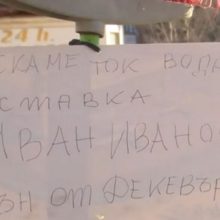 24 h.
СКАМЕ ТОК ВОДА
СТАВКА
ИВАН ИВАНО
ЪН ОТ ДЕКЕВЪ